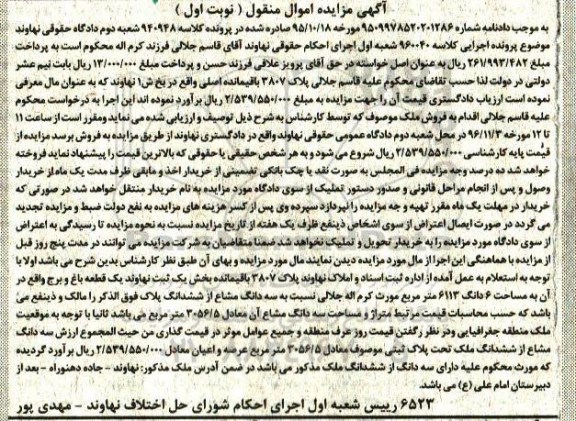 آگهی مزایده اموال منقول ( نوبت اول )
به موجب دادنامه شماره ۹۵۰۹۹۷۸۵۲۰۲۰۱۲۸۶ مورخه ۹۵/۱۰/۱۸ صادره شده در پرونده کلاسه ۹۴۰۹۴۸ شعبه دوم دادگاه حقوقی نهاوند
موضوع پرونده اجرایی کلاسه ۹۶۰۰۴۰ شعبه اول اجرای احکام حقوقی نهاوند آقای قاسم جلالی فرزند کرم اله محکوم است به پرداخت
مبلغ ۲۶۱/۹۹۳/۴۸۲ ریال به عنوان اصل خواسته در حق آقای پرویز علاقی فرزند حسن و پرداخت مبلغ ۱۳/۰۰۰/۰۰۰ ریال بابت نیم عشر
دولتی در دولت لذا حسب تقاضای محکوم علیه قاسم جلالی پلاک ۳۸۰۷ باقیمانده اصلی واقع در بخش۱ نهاوند که به عنوان مال معرفی
نموده است ارزیاب دادگستری قیمت آن را جهت مزایده به مبلغ ۲/۵۳۹/۵۵۰/۰۰۰ ریال برآورد نموده اند این اجرا به درخواست محکوم
علیه قاسم جلالی اقدام به فروش ملک موصوف که توسط کارشناس به شرح ذیل توصیف و ارزیابی شده می نماید ومقرر است از ساعت ۱۱
تا ۱۲ مورخه ۹۶/۱۱/۳ در محل شعبه دوم دادگاه عمومی حقوقی نهاوند واقع در دادگستری نهاوند از طریق مزایده به فروش برسد مزایده از
قیمت پایه کارشناسی ۲/۵۳۹/۵۵۰/۰۰۰ ریال شروع می شود و به هر شخص حقیقی یا حقوقی که بالاترین قیمت را پیشنهاد نماید فروخته
خواهد شد ده درصد وجه مزایده فی المجلس به صورت نقد یا چک بانکی تضمینی از خریدار اخذ و مابقی ظرف مدت یک ماه از خریدار
وصول و پس از انجام مراحل قانونی و صدور دستور تملیک از سوی دادگاه مورد مزایده به نام خریدار منتقل خواهد شد در صورتی که
خریدار در مهلت یک ماه مقرر تهیه و جه مزایده را نپردازد سپرده وی پس از کسر هزینه های مزایده به نفع دولت ضبط و مزایده تجدید
می گردد در صورت ایصال اعتراض از سوی اشخاص ذینفع ظرف یک هفته از تاریخ مزایده نسبت به نحوه مزایده تا رسیدگی به اعتراض
از سوی دادگاه مورد مزایده را به خریدار تحویل و تملیک نخواهد شد ضمنا متقاضیان به شرکت مزایده می توانند در مدت پنج روز قبل
از مزایده با هماهنگی این اجرا از مال مورد مزایده دیدن نمایند مال مورد مزایده و بهای آن طبق نظر کارشناس بدین شرح می باشد اولا با
توجه به استعلام به عمل آمده از اداره ثبت اسناد و املاک نهاوند پلاک ۳۸۰۷ باقیمانده بخش یک ثبت نهاوند یک قطعه باغ و برج واقع در
آن به مساحت ۶دانگ ۶۱۱۳ متر مربع مورث کرم اله جلالی نسبت به سه دانگ مشاع از ششدانگ پلاک فوق الذکر را مالک و ذینفع می
باشد که حسب محاسبات قیمت مرتبط متراژ و مساحت سه دانگ مشاع آن معادل ۳۰۵۶/۵ متر مربع می باشد ثانیا با توجه به موقعیت
ملک منطقه جغرافیایی ودر نظر رگفتن قیمت روز عرف منطقه و جمیع عوامل موثر در قیمت گذاری من حیث المجموع ارزش سه دانگ
مشاع از ششدانگ ملک تحت پلاک ثبتی موصوف معادل ۳۰۵۶/۵ متر مربع عرصه و اعیان معادل ۲/۵۳۹/۵۵۰/۰۰۰ ریال برآورد گردیده
که مورث محکوم علیه دارای سه دانگ از ششدانگ ملک مذکور می باشد در ضمن آدرس ملک مذکور: نهاوند - جاده دهنوراه - بعد از
دبیرستان امام علی (ع) می باشد.
۶۵۲۳ رییس شعبه اول اجرای احکام شورای حل اختلاف نهاوند - مهدی پور